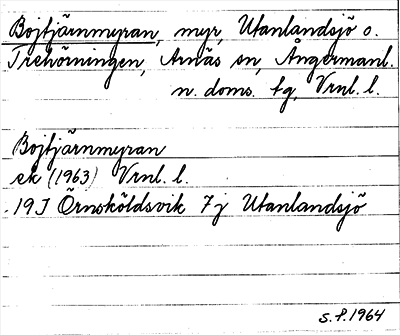 Bojtjärnmyran, myr, Utanlandsjö o.
Trehörningen, Arnäs sn, Ångermanl.
n. doms. tg, Vrnl. l.
Bojtjärnmyran
ek (1963) Vrnl. l.
19J Örnsköldsvik 7j Utanlandsjö
S.F. 1964